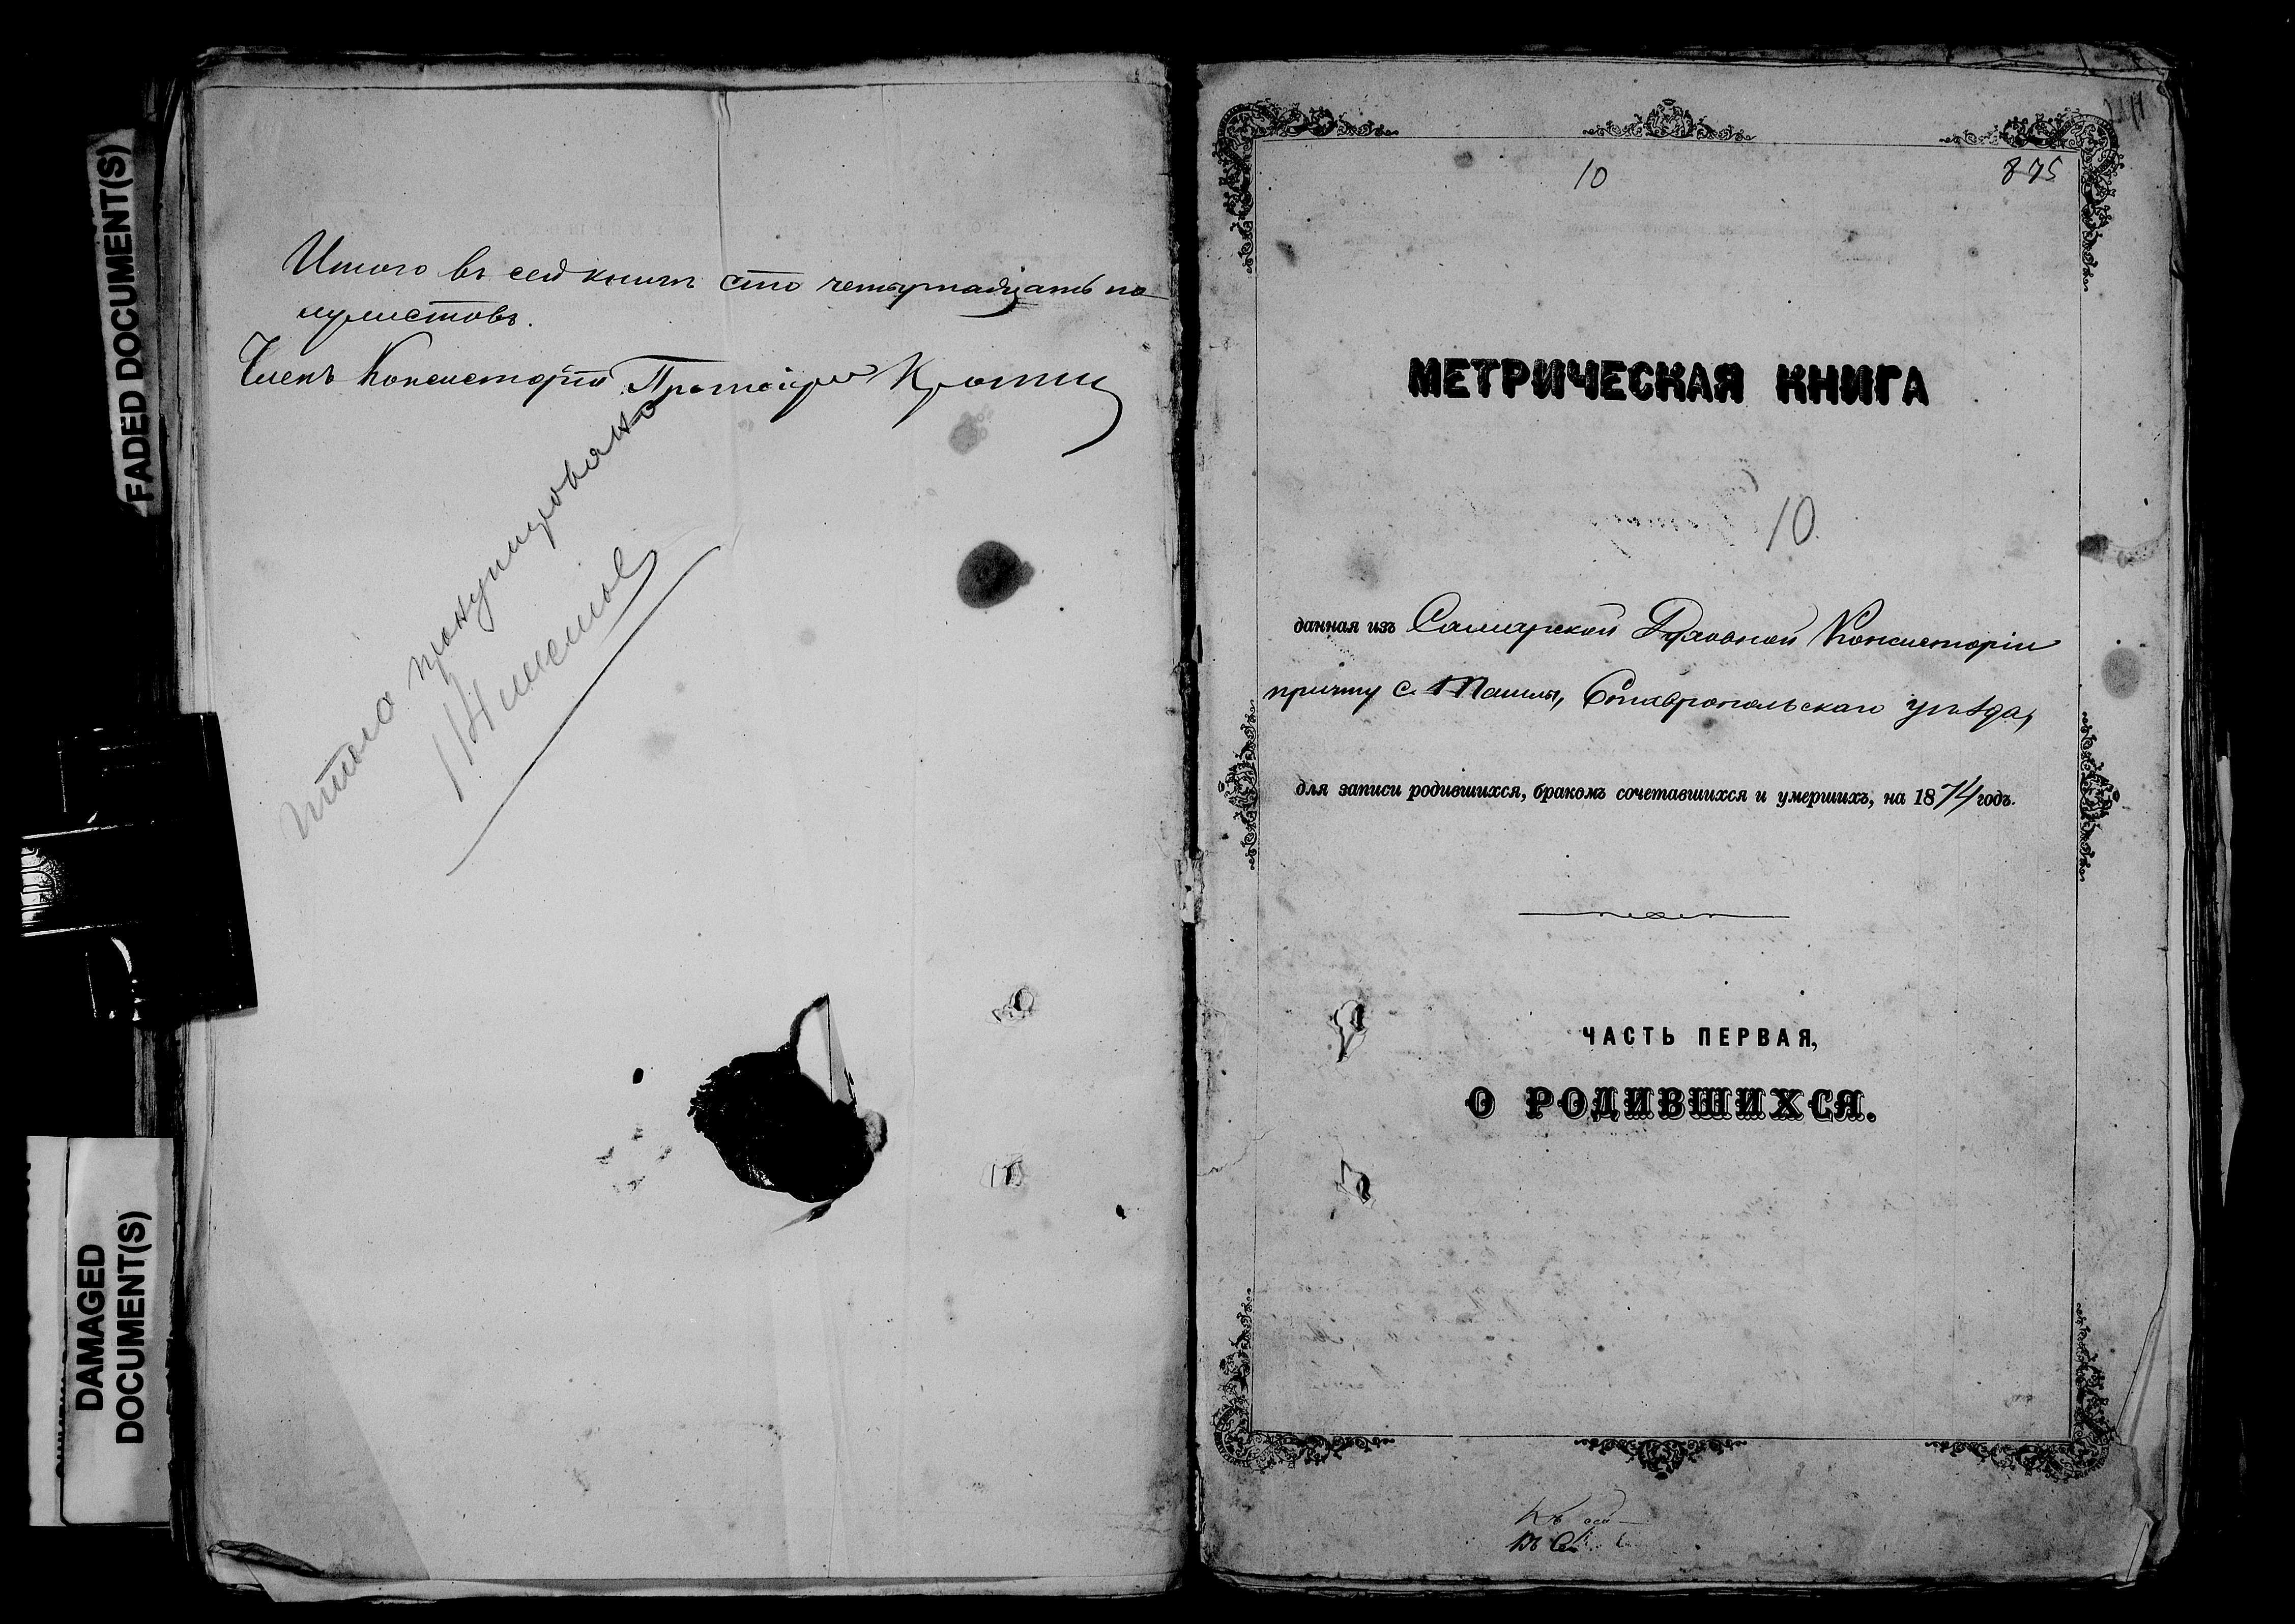 FADED DOCUMENT(S)
DAMAGED
DOCUMENT(S)
Итого въ сей книгѣ сто четырнадцать по-
лулистовъ.
Членъ Консисторіи Протоіерей
Итого пронумеровано
114 листов
10
875
МЕТРИЧЕСКАЯ КНИГА
10
данная изъ Самарской Духовной Консисторіи
причту с. Ташлы, Ставропольскаго уѣзда,
для записи родившихся, бракомъ сочетавшихся и умершихъ, на 1874 годъ.
ЧАСТЬ ПЕРВАЯ,
О РОДИВШИХСЯ.